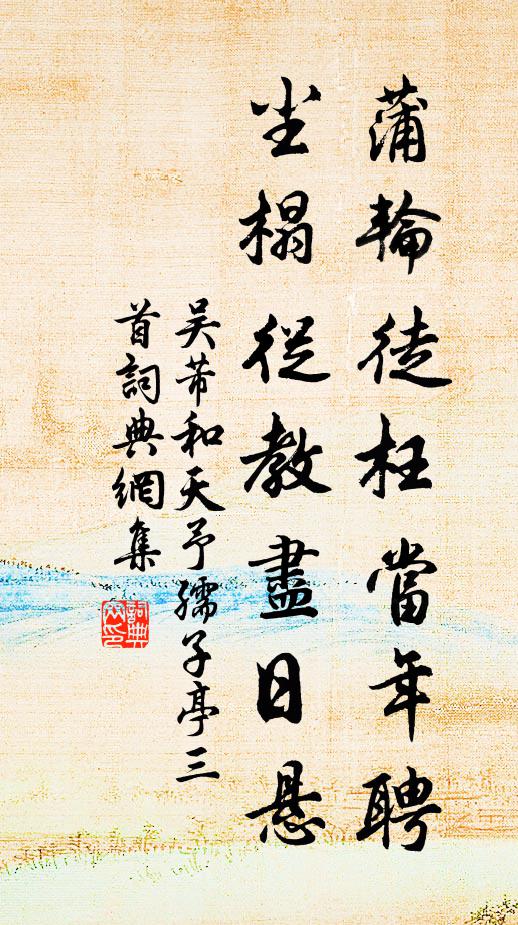 蒲輪徒枉當年聘
坐榻從教盡日懸
吴芾和天予孺子亭三
首詞典網集
詞典網印